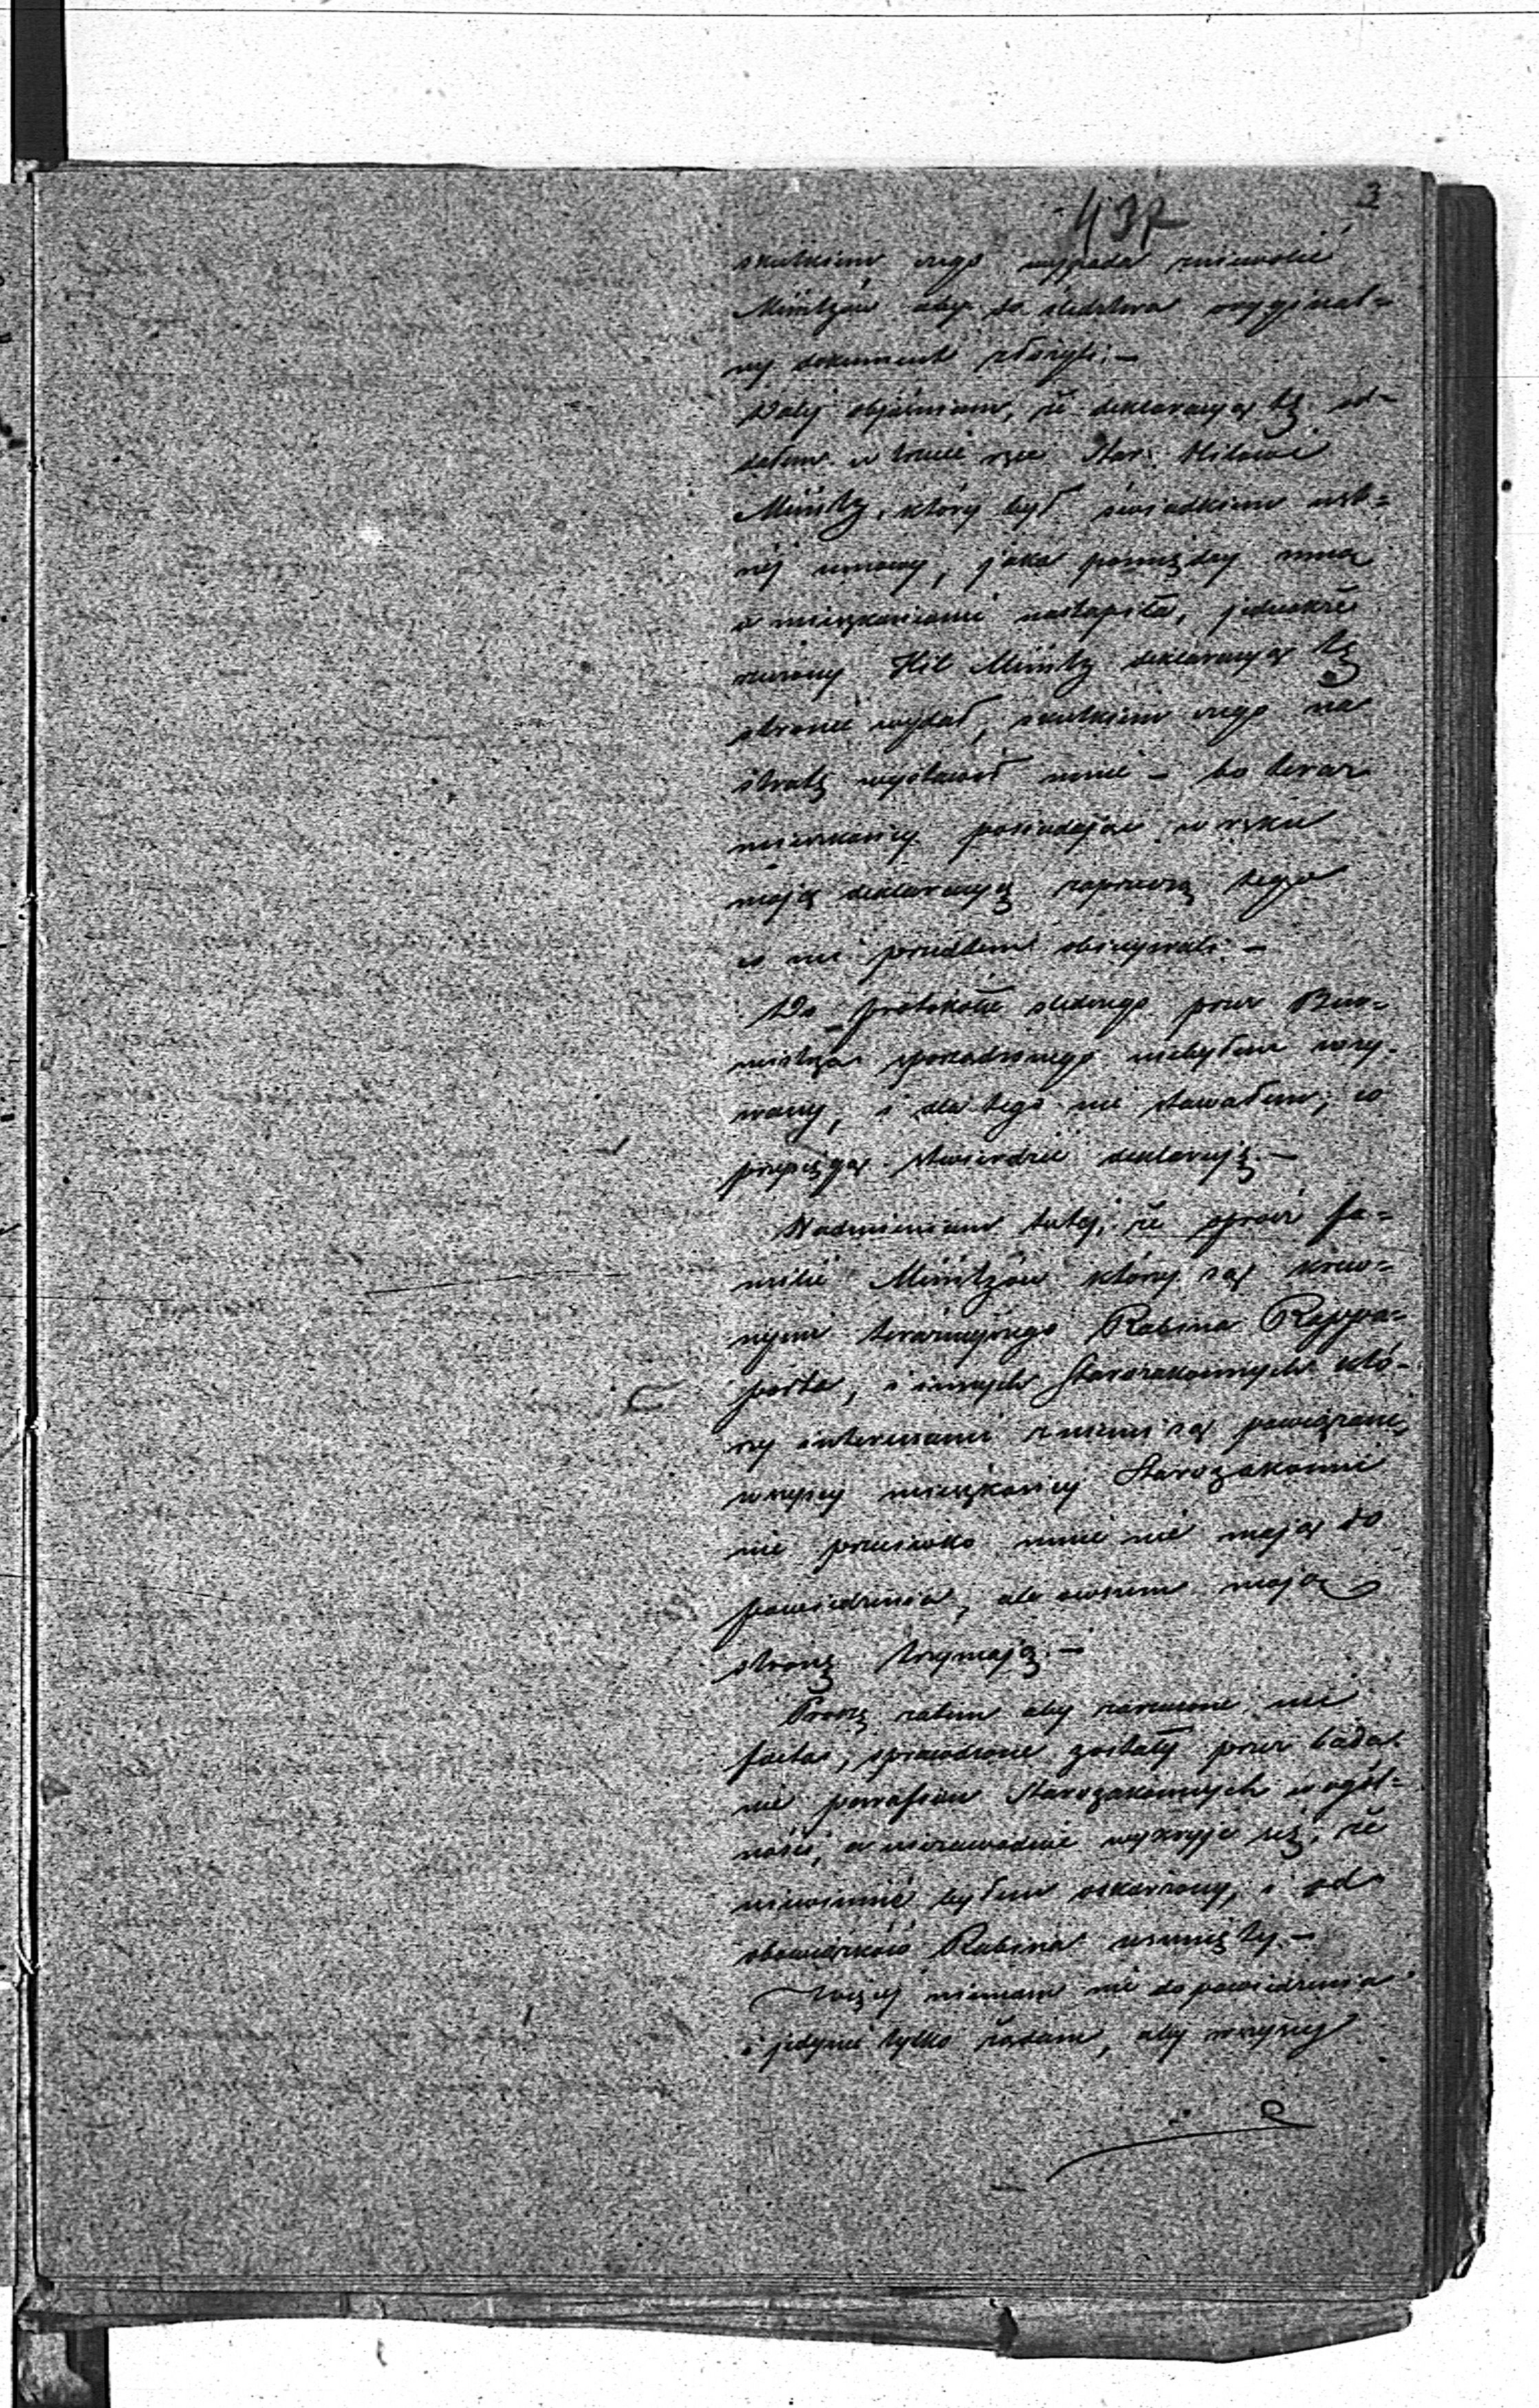 3
437
skutkiem czego wypada zniewolić
Müntzów aby do śledztwa oryginal=
ny dokument złożyli. —
Daléj objaśniam, że deklaracyą tę od=
dałem w trzecie ręce Star: Hilowi
Müntz, który był świadkiem ust=
néj umowy, jaka pomiędzy mną
a mieszkańcami nastąpiła, jednakże
rzeczony Hil Müntz deklaracyą tę
stronie wydał, skutkiem czego na
stratę wystawił mnie — bo teraz
mieszkańcy posiadając w ręku
moją deklaracyą zaprzeczą tego
co mi przedtem obiecywali. —
Do protokółu śledczego przez Bur=
mistrza sporządzonego niebyłem wzy=
wany, i dla tego nie stawałem; co
przysięgą stwierdzić deklaruję. —
Nadmieniam tutaj, że oprócz fa=
milii Müntzów którzy są krew=
nymi teraźniejszego Rabina Rappa=
porta, i innych Starozakonnych któ=
rzy interesami z niemi są powiązani,
wszyscy mieszkańcy Starozakonni
nic przeciwko mnie nie mają do
powiedzenia, ale owszem moją
stronę trzymają. —
Proszę zatem aby zarzucone mi
facta, sprawdzone zostały przez bada
nie parafian Starozakonnych w ogól=
ności, a niezawodnie wykryje się, że
niewinnie byłem oskarżony, i od
obowiązków Rabina usunięty. —
Więcéj niemam nic do powiedzenia
i jedynie tylko żądam, aby wszyscy